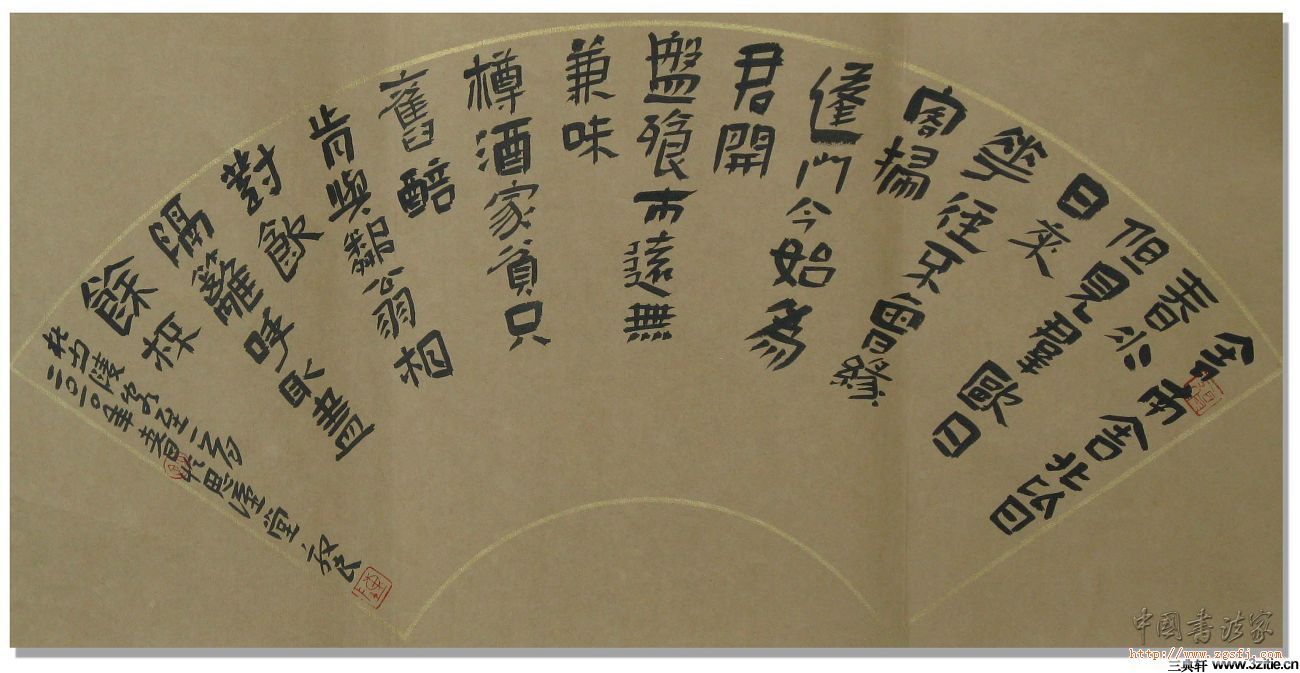 舍南舍北皆
春水
但見羣歐日
日來
花徑不曾緣
客掃
蓬門今始為
君開
盤飧市遠無
兼味
樽酒家貧只
舊醅
肯與鄰翁相
對飲
隔籬呼取盡
餘杯
杜少陵客至一首
二〇一〇年
堂
中國书法家
http://www.zgsfj.com
三典轩 www.3zitie.cn